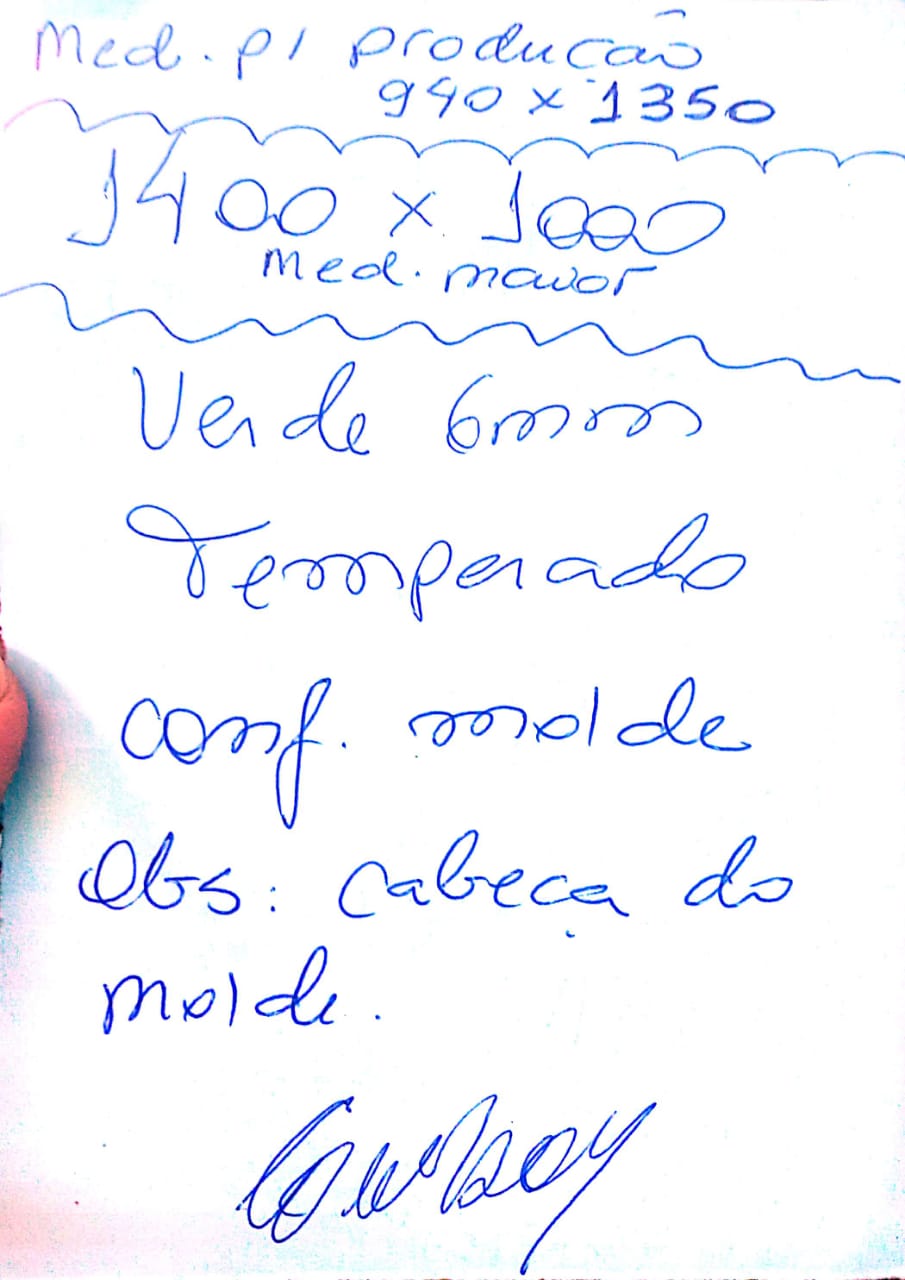 Med. p/ produção
940 x 1350
1400 x 1000
Med. maior
Verde 6mm
Temperado
conf. molde
Obs: cabeça do
molde.
Cowboy